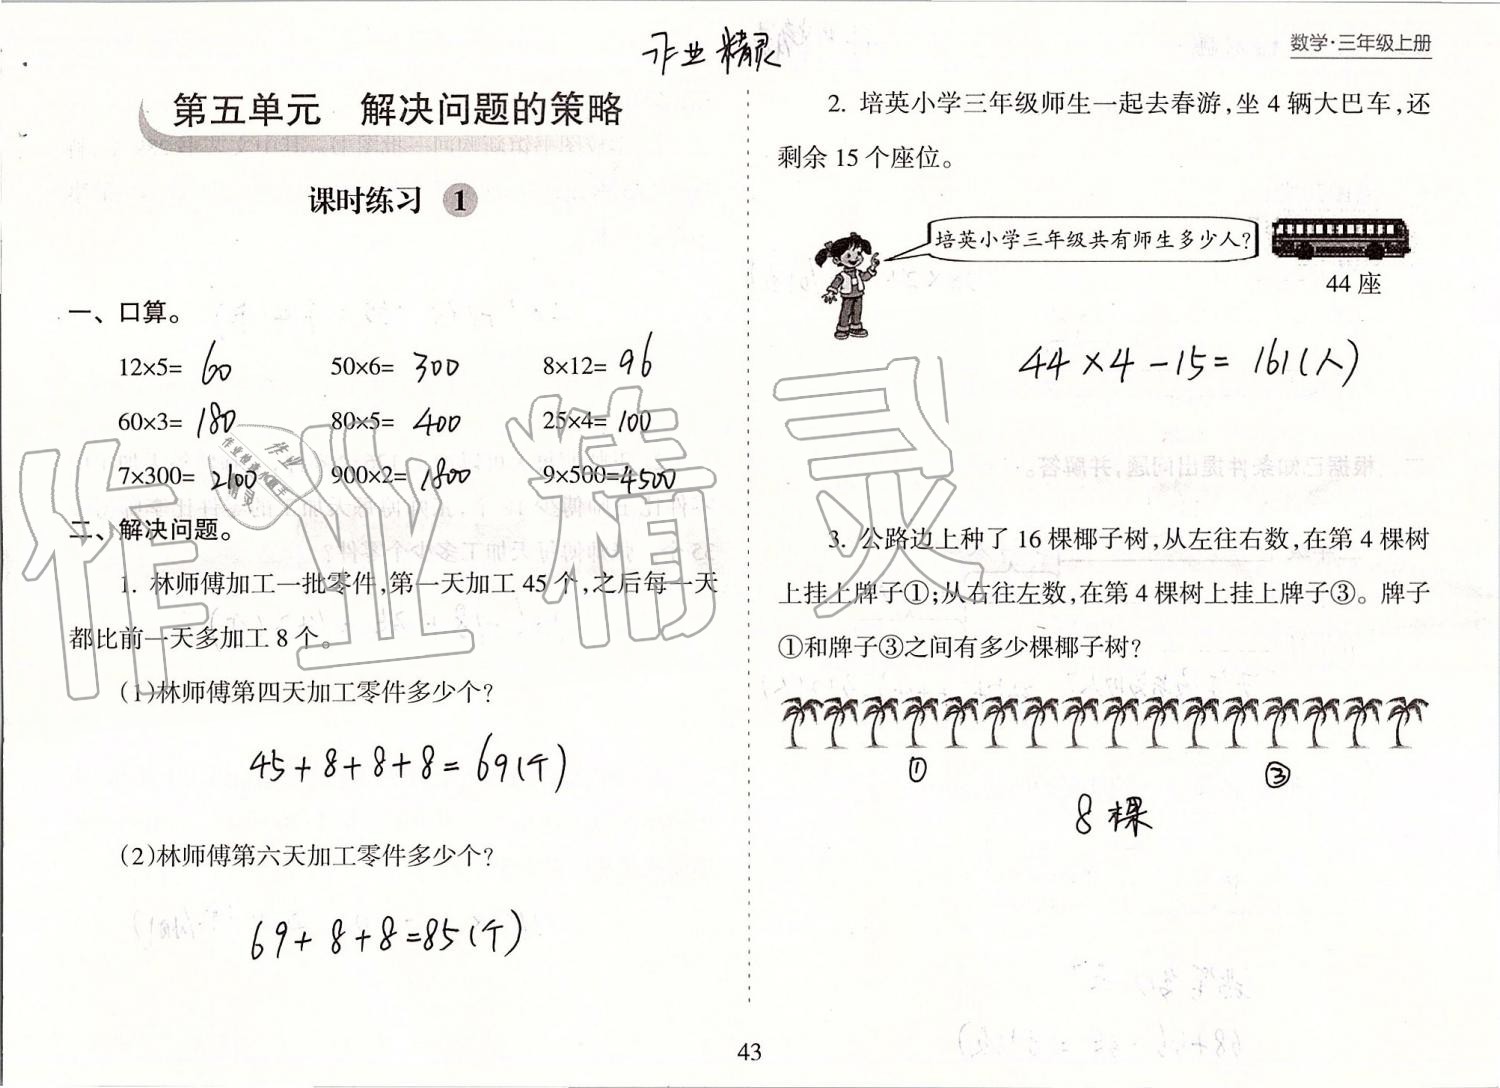 作业精灵
数学·三年级上册
第五单元 解决问题的策略
课时练习 1
一、口算。
12×5= 60 50×6= 300 8×12= 96
60×3= 180 80×5= 400 25×4= 100
7×300= 2100 900×2= 1800 9×500=4500
二、解决问题。
1. 林师傅加工一批零件,第一天加工 45 个,之后每一天
都比前一天多加工 8 个。
(1)林师傅第四天加工零件多少个?
45+8+8+8=69(个)
(2)林师傅第六天加工零件多少个?
69+8+8=85(个)
2. 培英小学三年级师生一起去春游,坐 4 辆大巴车,还
剩余 15 个座位。
培英小学三年级共有师生多少人?
44 座
44×4-15=161(人)
3. 公路边上种了 16 棵椰子树,从左往右数,在第 4 棵树
上挂上牌子①;从右往左数,在第 4 棵树上挂上牌子③。牌子
①和牌子③之间有多少棵椰子树?
① ③
8棵
43
作业精灵